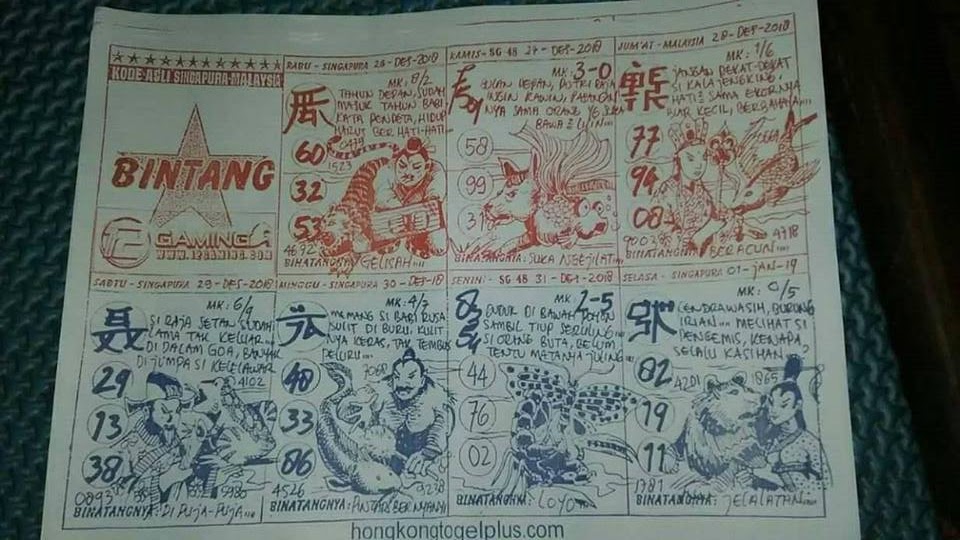 KODE ASLI SINGAPURA-MALAYSIA
BINTANG
12 GAMING
WWW.12GAMING.COM
RABU - SINGAPURA 26-DES-2018
MK: 8/2
TAHUN DEPAN, SUDAH
MASUK TAHUN BABI
KATA PENDETA, HIDUP
HARUS BER HATI-HATI
60
32
53
1523
4692
BINATANGNYA: GELISAH
KAMIS - SG 48 27-DES-2018
MK: 3-0
BULAN DEPAN, PUTRI RAJA
INGIN KAWIN, PASANGAN
NYA SAMA ORANG YG SUKA
BAWA LILIN
58
99
31
BINATANGNYA: SUKA NGEJILAT
JUM'AT - MALAYSIA 28-DES-2018
MK: 1/6
JANGAN DEKAT-DEKAT
SI KALA JENGKING,
HATI2 SAMA EKORNYA
BIAR KECIL, BERBAHAYA
77
94
08
9003
4718
BERACUN
SABTU - SINGAPURA 29-DES-2018
MK: 6/9
SI RAJA SETAN SUDAH
LAMA TAK KELUAR
DI DALAM GOA, BANYAK
DIJUMPA SI KELELAWAR
29
13
38
4102
0893
5980
BINATANGNYA: DI PUJA-PUJA
MINGGU - SINGAPURA 30-DES-18
MK: 4/7
MEMANG SI BABI RUSA
SULIT DI BURU, KULIT
NYA KERAS, TAK TEMBUS
PELURU
48
33
86
3068
4526
9238
BINATANGNYA: PINTAR BERNYANYI
SENIN: - SG 48 31-DES-2018
MK: 2-5
DUDUK DI BAWAH POHON
SAMBIL TIUP SERULING
SI ORANG BUTA, BELUM
TENTU MATANYA JULING
44
76
02
BINATANGNYA: LOYO
SELASA - SINGAPURA 01-JAN-19
MK: 0/5
CENDRAWASIH, BURUNG
IRIAN MELIHAT SI
PENGEMIS, KENAPA
SELALU KASIHAN
82
19
11
4201
1865
1787
BINATANGNYA: JELALATAN
hongkongtogelplus.com